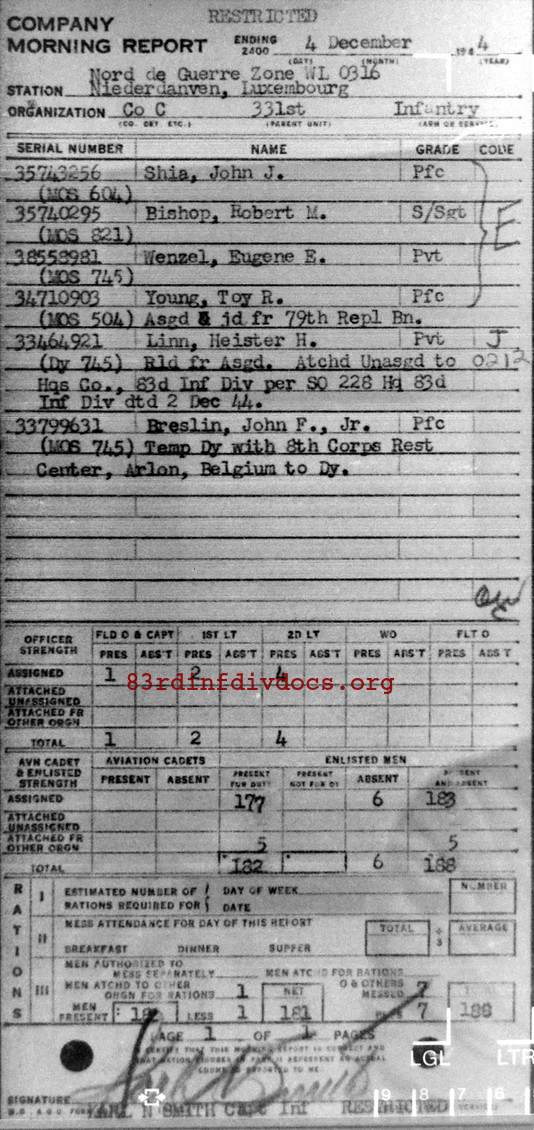 RESTRICTED
COMPANY
MORNING REPORT ENDING 2400 4 December 194 4
(DAY) (MONTH) (YEAR)
Nord de Guerre Zone WL 0316
STATION Niederdanven, Luxembourg
ORGANIZATION Co C 331st Infantry
(CO. DET. ETC.) (PARENT UNIT) (ARM OR SERVICE)
SERIAL NUMBER NAME GRADE CODE
35743256 Shia, John J. Pfc
(MOS 604)
35740295 Bishop, Robert M. S/Sgt E
(MOS 821)
38558981 Wenzel, Eugene E. Pvt
(MOS 745)
34710903 Young, Toy R. Pfc
(MOS 504) Asgd & jd fr 79th Repl Bn.
33464921 Linn, Heister H. Pvt J
(Dy 745) Rld fr Asgd. Atchd Unasgd to 0212
Hqs Co., 83d Inf Div per SO 228 Hq 83d
Inf Div dtd 2 Dec 44.
33799631 Breslin, John F., Jr. Pfc
(MOS 745) Temp Dy with 8th Corps Rest
Center, Arlon, Belgium to Dy.
OFFICER STRENGTH FLD O & CAPT 1ST LT 2D LT WO FLT O
PRES ABS'T PRES ABS'T PRES ABS'T PRES ABS'T PRES ABS'T
ASSIGNED 1 2 4
83rdinfdivdocs.org
ATTACHED UNASSIGNED
ATTACHED FR OTHER ORGN
TOTAL 1 2 4
AVN CADET & ENLISTED STRENGTH AVIATION CADETS ENLISTED MEN
PRESENT ABSENT PRESENT FOR DUTY PRESENT NOT FOR DY ABSENT PRESENT AND ABSENT
ASSIGNED 177 6 183
ATTACHED UNASSIGNED
ATTACHED FR OTHER ORGN 5 5
TOTAL 182 6 188
RATIONS
I ESTIMATED NUMBER OF RATIONS REQUIRED FOR DAY OF WEEK DATE NUMBER
II MESS ATTENDANCE FOR DAY OF THIS REPORT TOTAL ÷ 3 AVERAGE
BREAKFAST DINNER SUPPER
III MEN AUTHORIZED TO MESS SEPARATELY MEN ATCHD FOR RATIONS
MEN ATCHD TO OTHER ORGN FOR RATIONS 1 NET O & OTHERS MESSED 7
MEN PRESENT 182 LESS 1 181 7 188
PAGE 1 OF 1 PAGES
SIGNATURE KARL N SMITH Capt Inf RESTRICTED
LGL LTR
9 8 7 6